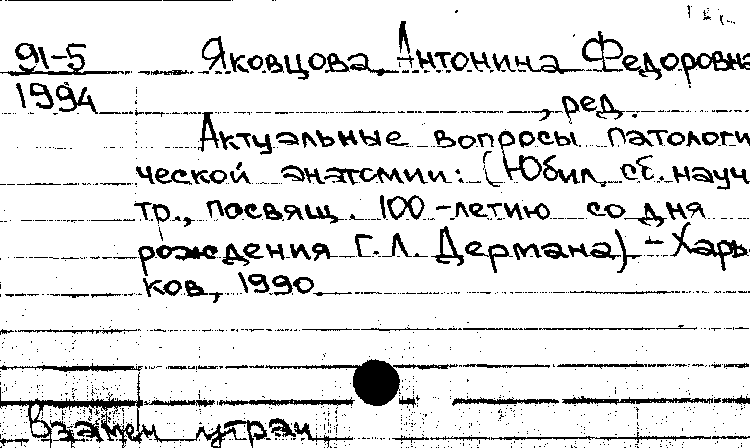 91-5 Яковцова, Антонина Федоровна
1994 , ред.
Актуальные вопросы патологи
ческой анатомии: (Юбил. сб. науч
тр., посвящ. 100-летию со дня
рождения Г. Л. Дермана) - Харь
ков, 1990.
Взамен утрач